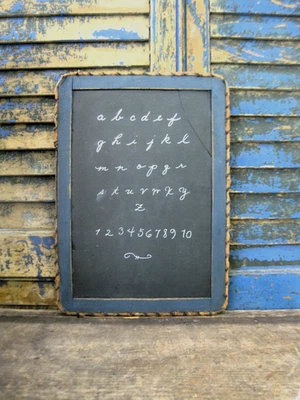 a b c d e f
g h i j k l
m n o p q r
s t u v w x y
z
1 2 3 4 5 6 7 8 9 10